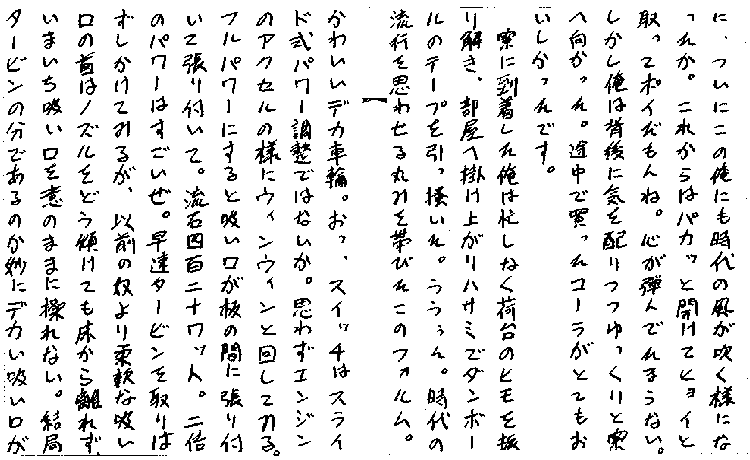 に、ついにこの俺にも時代の風が吹く様にな
ったか。これからはパカッと開けてヒョイと
取ってポイだもんね。心が弾んでたまらない。
しかし俺は背後に気を配りつつゆっくりと寮
へ向かった。途中で買ったコーラがとてもお
いしかったです。
寮に到着した俺は忙しなく荷台のヒモを振
り解き、部屋へ掛け上がりハサミでダンボー
ルのテープを引っ掻いた。ううぅん。時代の
流行を思わせる丸みを帯びたこのフォルム。
かわいいデカ車輪。おっ、スイッチはスライ
ド式パワー調整ではないか。思わずエンジン
のアクセルの様にウィンウィンと回してみる。
フルパワーにすると吸い口が板の間に張り付
いて張り付いて。流石四百二十ワット。二倍
のパワーはすごいぜ。早速タービンを取りは
ずしかけてみるが、以前の奴より柔軟な吸い
口の首はノズルをどう傾けても床から離れず、
いまいち吸い口を意のままに操れない。結局
タービンの分であるのか妙にデカい吸い口が